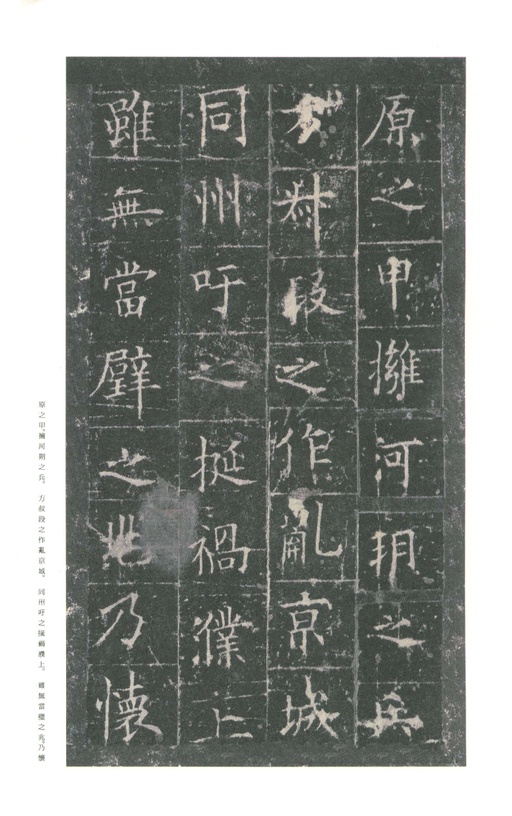 原之甲擁河朔之兵
方叔段之作亂京城
同州吁之挻禍濮上
雖無當璧之兆乃懷
原之甲。擁河朔之兵。方叔段之作亂京城。同州吁之挻禍濮上。雖無當璧之兆。乃懷